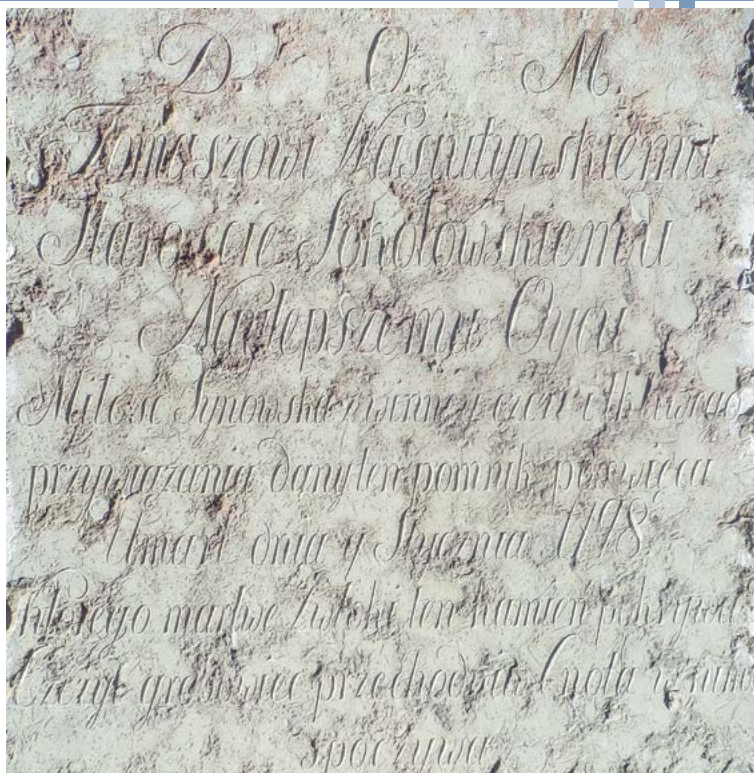 D. O. M.
Tomaszowi Wasiutynskiemu
Staroscie Sokołowskiemu
Naylepszemu Oycu
Miłosc Synowska czci
przywiązania dany ten pomnik poswięca
Umarł dnia y Stycznia 1798.
Ktorego martwe Zwłoki ten kamien pokrywa
przechodniu Cnota
spoczywa